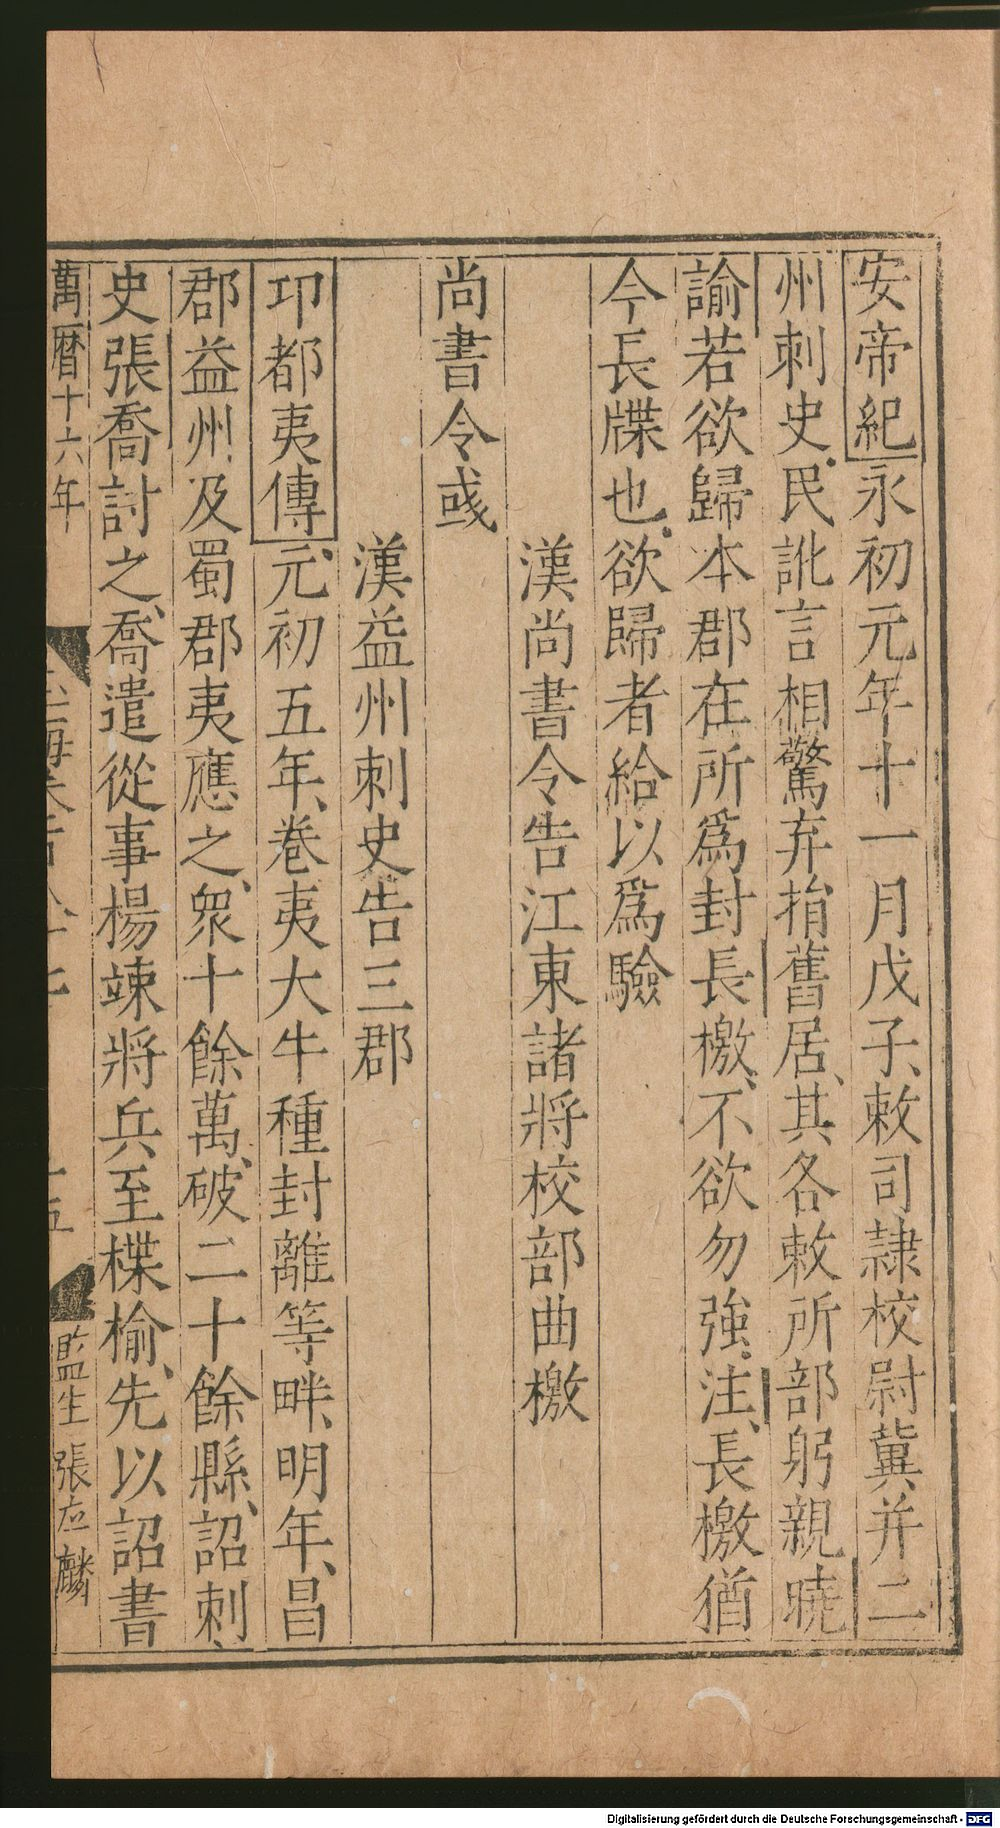 安帝紀永初元年十一月戊子、敕司隷校尉冀并二
州刺史。民訛言相驚弃捐舊居、其各敕所部躬親曉
諭若欲歸本郡在所爲封長檄、不欲勿強。注、長檄猶
今長牒也。欲歸者給以爲驗
漢尚書令告江東諸將校部曲檄
尚書令彧
漢益州刺史告三郡
卭都夷傳元初五年、卷夷大牛種封離等畔、明年、昌
郡益州及蜀郡夷應之、衆十餘萬、破二十餘縣、詔刺
史張喬討之、喬遣從事楊竦將兵至楪榆、先以詔書
萬曆十六年
監生張應麟
Digitalisierung gefördert durch die Deutsche Forschungsgemeinschaft - DFG